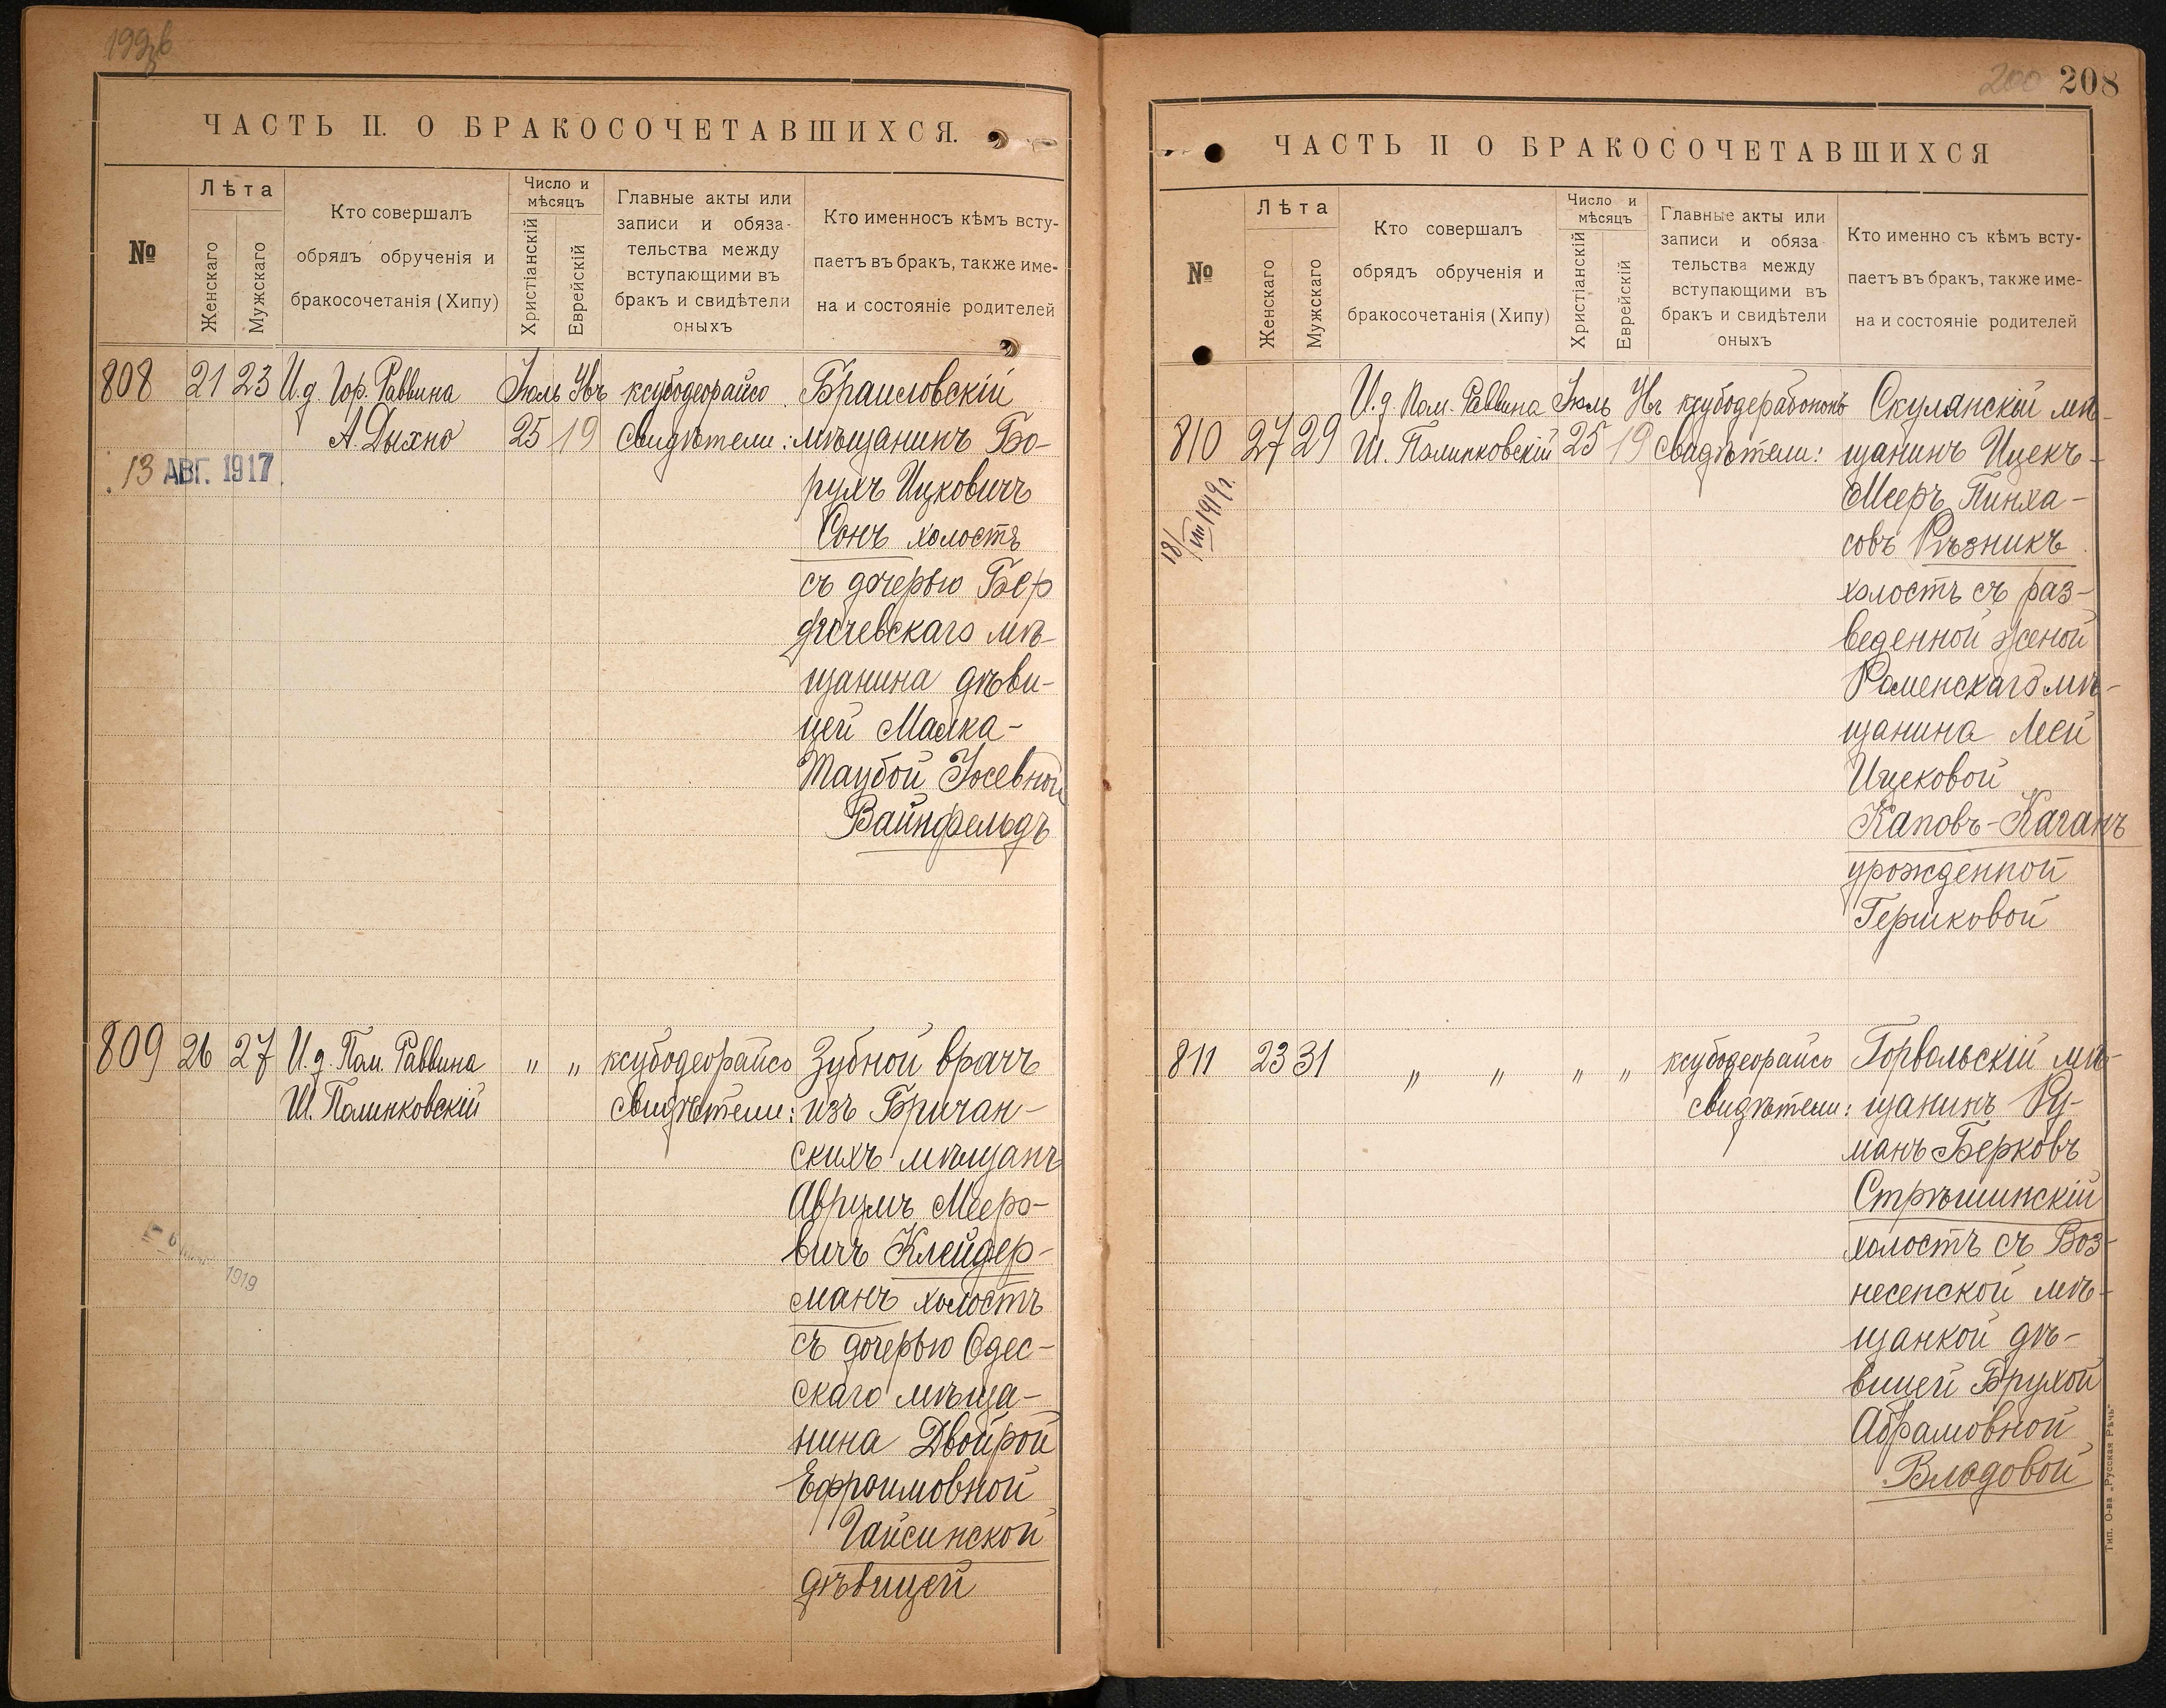 199 в
ЧАСТЬ II. О БРАКОСОЧЕТАВШИХСЯ.
№
Лѣта
Женскаго
Мужскаго
Кто совершалъ
обрядъ обрученія и
бракосочетанія (Хипу)
Число и
мѣсяцъ
Христіанскій
Еврейскій
Главные акты или
записи и обяза-
тельства между
вступающими въ
бракъ и свидѣтели
оныхъ
Кто именносъ кѣмъ всту-
паетъ въ бракъ, также име-
на и состояніе родителей
808 21 23 И.д. Гор. Раввина Іюль Увъ ксубодеорайсо Браиловскій
А. Дыхно 25 19 свидѣтели: мѣщанинъ Бо-
13 АВГ. 1917
рухъ Ицковичъ
Сонъ холостъ
съ дочерью Бер
дичевскаго мѣ-
щанина дѣви-
цей Малка-
Таубой Іосевной
Вайнфельдъ
809 26 27 И.д. Пом. Раввина " " ксубодеорайсо Зубной врачъ
Ш. Полинковскій свидѣтели: изъ Бричан-
скихъ мѣщанъ
Аврумъ Мееро-
вичъ Клейдер-
1919
манъ холостъ
съ дочерью Одес-
скаго мѣща-
нина Двойрой
Ефроимовной
Гайсинской
дѣвицей
200 208
ЧАСТЬ II О БРАКОСОЧЕТАВШИХСЯ
№
Лѣта
Женскаго
Мужскаго
Кто совершалъ
обрядъ обрученія и
бракосочетанія (Хипу)
Число и
мѣсяцъ
Христіанскій
Еврейскій
Главные акты или
записи и обяза
тельства между
вступающими въ
бракъ и свидѣтели
оныхъ
Кто именно съ кѣмъ всту-
паетъ въ бракъ, также име-
на и состояніе родителей
И.д. Пом. Раввина Іюль Увъ ксубодерабононъ Скулянскій мѣ-
810 27 29 Ш. Полинковскій 25 19 свидѣтели: щанинъ Ицекъ-
Мееръ Пинха-
18/VIII 1919 г.
совъ Рѣзникъ
холостъ съ раз-
веденной женой
Роменскаго мѣ-
щанина Леей
Ицековой
Каповъ-Каганъ
урожденной
Гершковой
811 23 31 " " " " ксубодеорайсо Горвольскій мѣ-
свидѣтели: щанинъ Ру-
манъ Берковъ
Стрѣшинскій
холостъ съ Воз-
несенской мѣ-
щанкой дѣ-
вицей Брухой
Абрамовной
Владовой
Тип. О-ва „Русская Рѣчь"